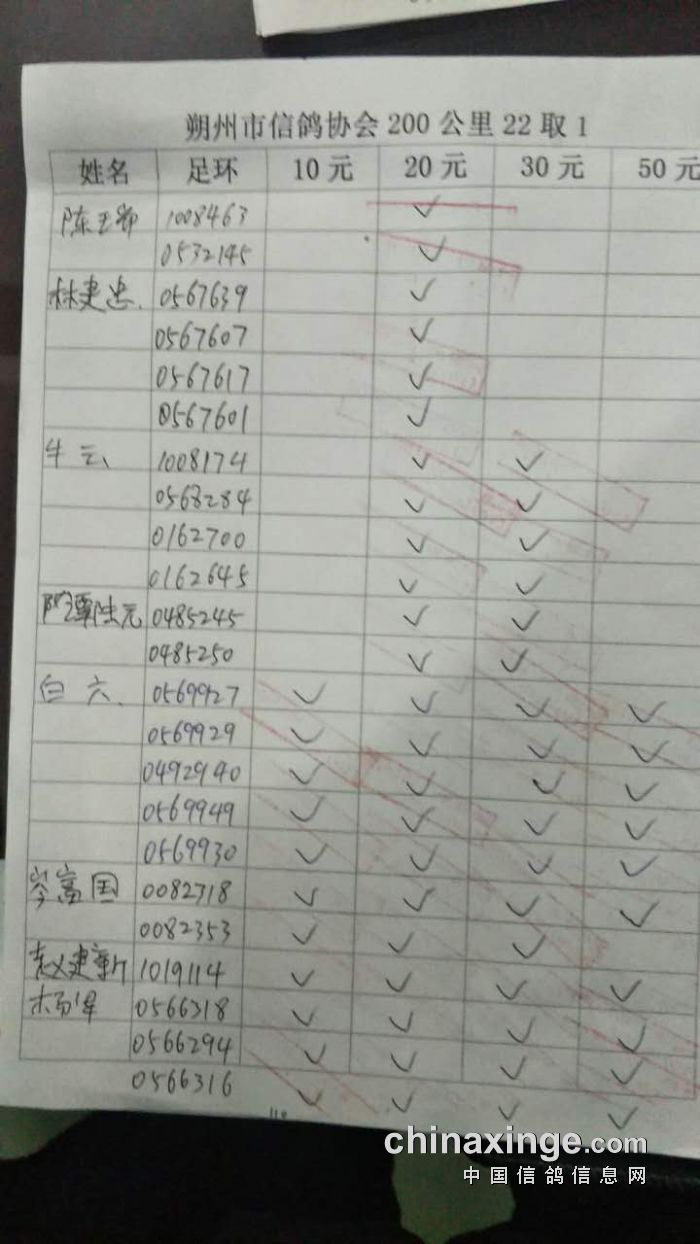 朔州市信鸽协会 200 公里 22 取 1
姓名 足环 10 元 20 元 30 元 50 元
陈玉 1008463 ✓
0532145 ✓
林建忠 0567639 ✓
0567607 ✓
0567617 ✓
0567601 ✓
牛云 1008174 ✓ ✓
0568284 ✓ ✓
0162700 ✓ ✓
0162645 ✓ ✓
0485245 ✓ ✓
0485250 ✓ ✓
白六 0569927 ✓ ✓ ✓ ✓
0569929 ✓ ✓ ✓ ✓
0492940 ✓ ✓ ✓ ✓
0569949 ✓ ✓ ✓ ✓
0569930 ✓ ✓ ✓ ✓
岑富国 0082718 ✓ ✓ ✓ ✓
0082353 ✓ ✓ ✓
赵建新 1019114 ✓ ✓ ✓ ✓
杨军 0566318 ✓ ✓ ✓ ✓
0566294 ✓ ✓ ✓ ✓
0566316 ✓ ✓ ✓ ✓
chinaxinge.com
中国信鸽信息网